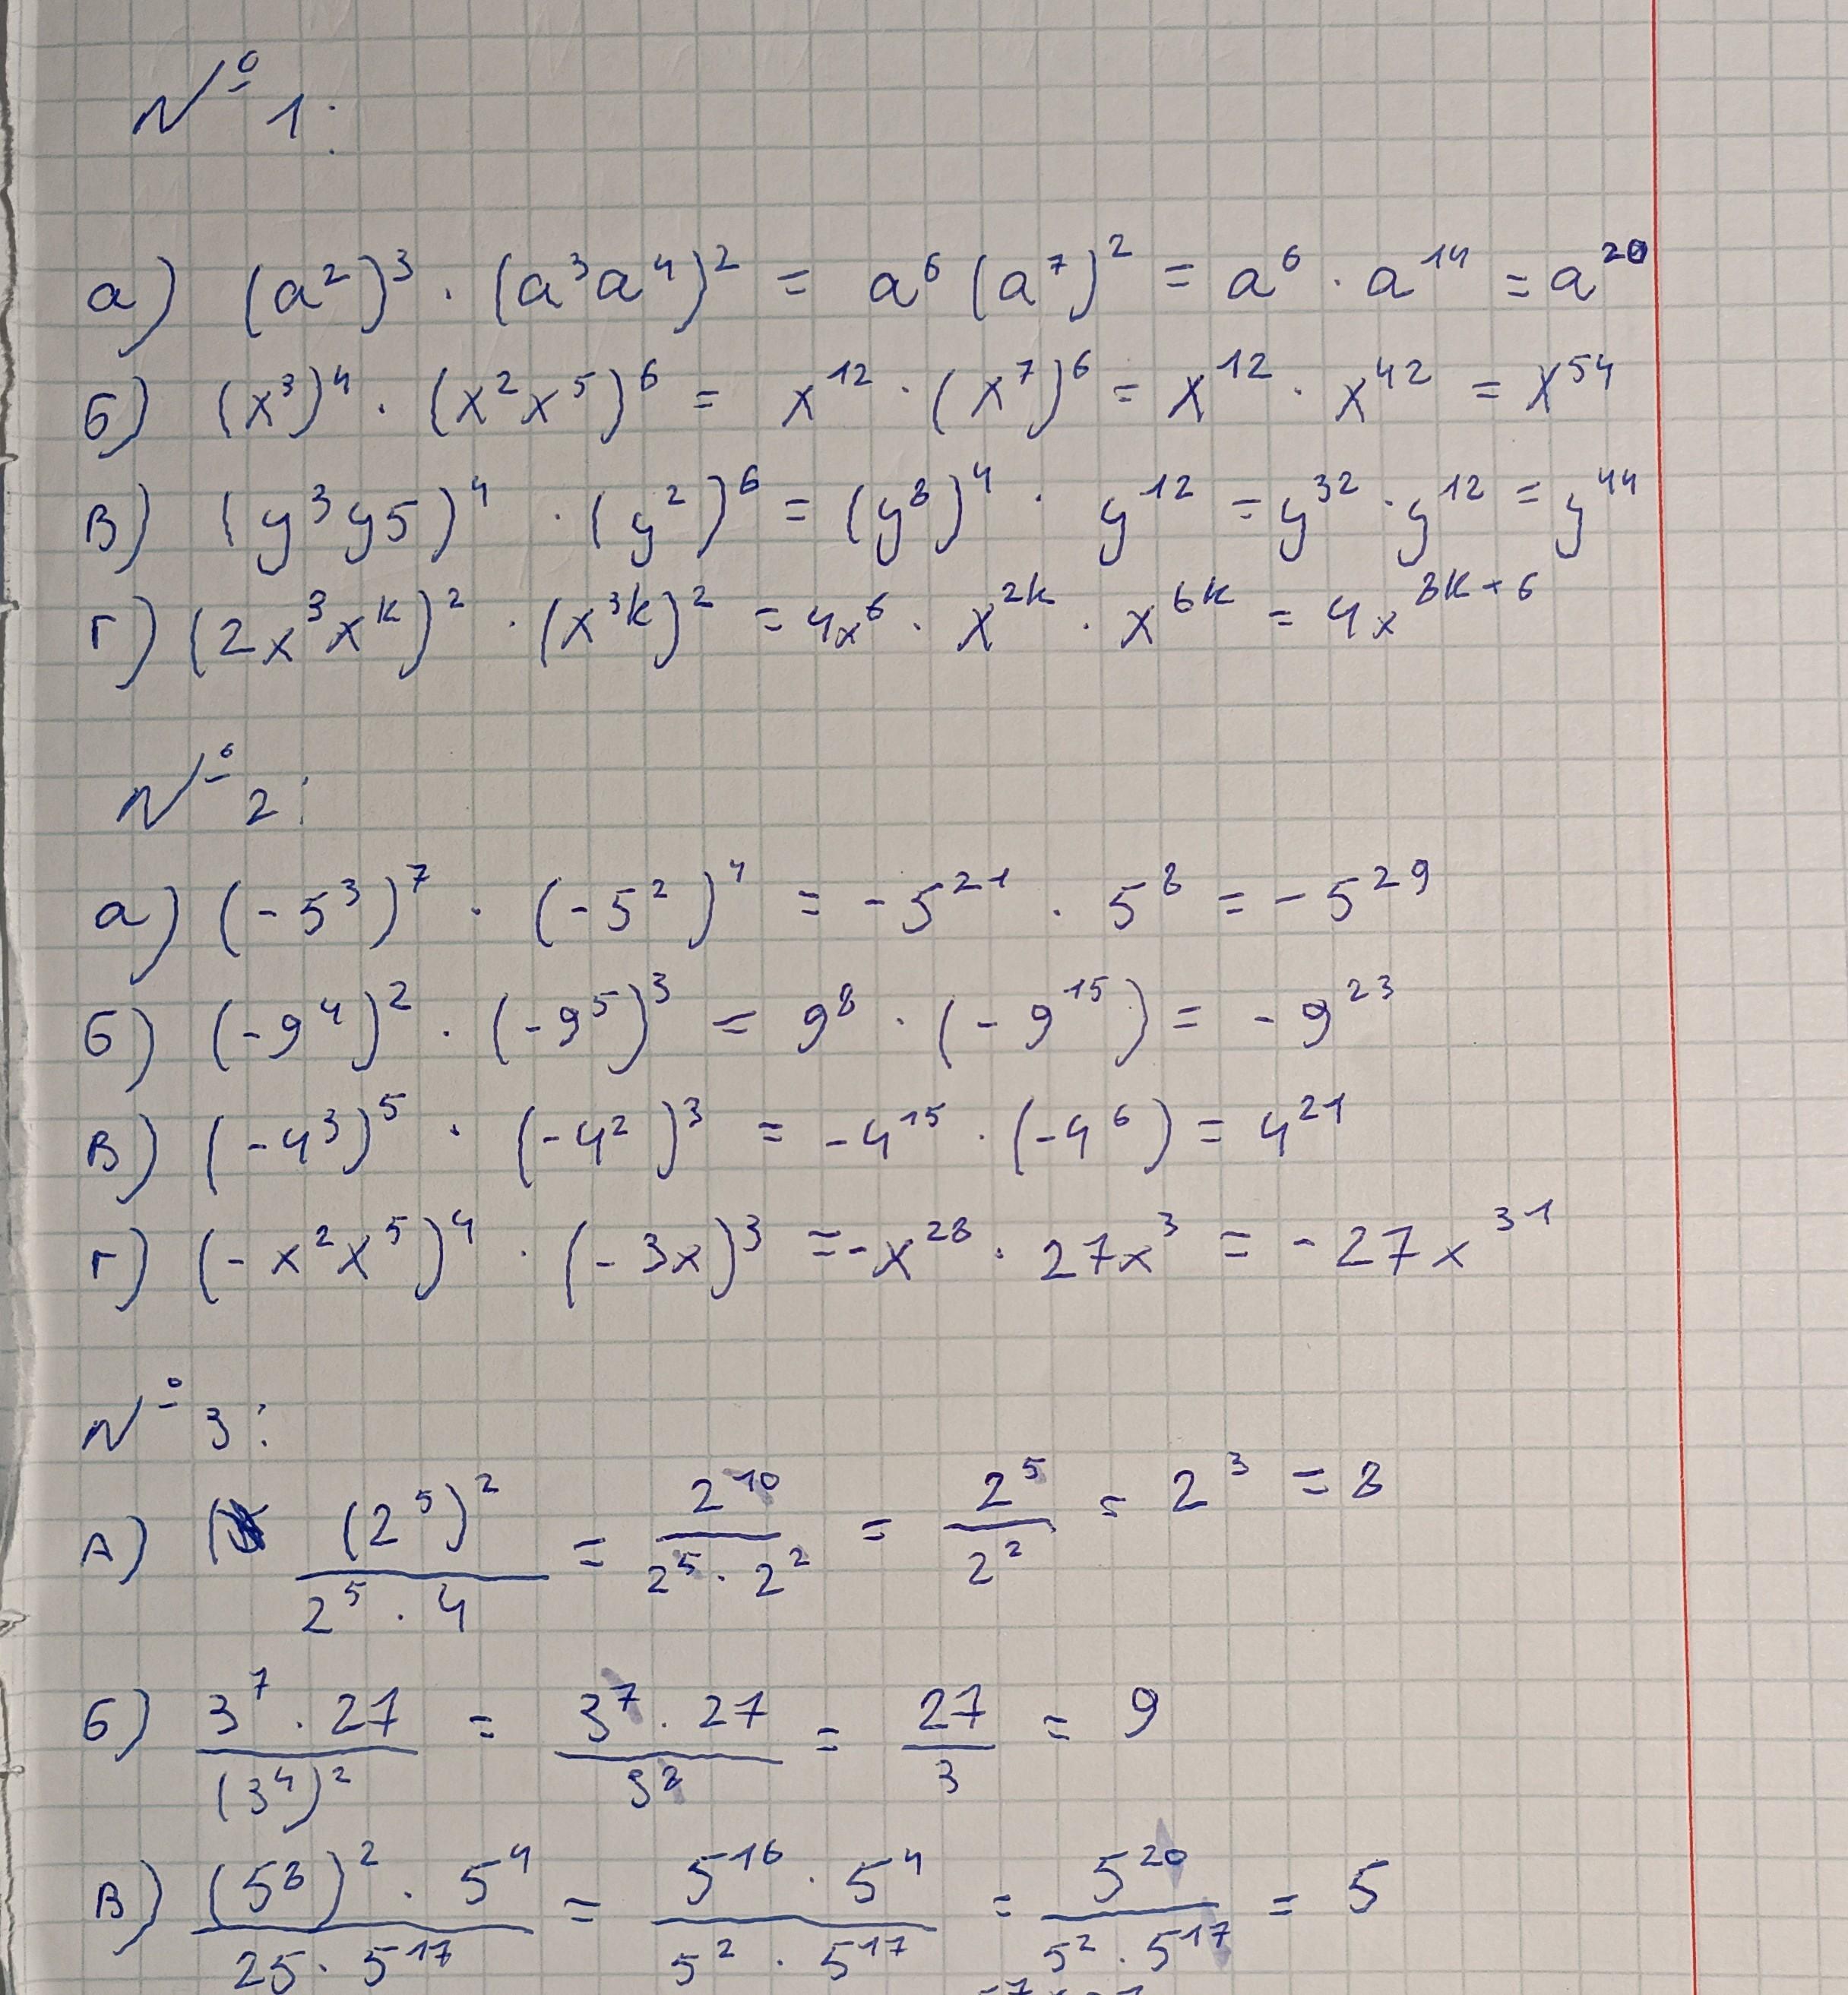 № 1:
а) (a²)³ · (a³a⁴)² = a⁶ (a⁷)² = a⁶ · a¹⁴ = a²⁰
б) (x³)⁴ · (x²x⁵)⁶ = x¹² · (x⁷)⁶ = x¹² · x⁴² = x⁵⁴
в) (y³y5)⁴ · (y²)⁶ = (y⁸)⁴ · y¹² = y³² · y¹² = y⁴⁴
г) (2x³xᵏ)² · (x³ᵏ)² = 4x⁶ · x²ᵏ · x⁶ᵏ = 4x⁸ᵏ⁺⁶
№ 2:
а) (-5³)⁷ · (-5²)⁴ = -5²¹ · 5⁸ = -5²⁹
б) (-9⁴)² · (-9⁵)³ = 9⁸ · (-9¹⁵) = -9²³
в) (-4³)⁵ · (-4²)³ = -4¹⁵ · (-4⁶) = 4²¹
г) (-x²x⁵)⁴ · (-3x)³ = -x²⁸ · 27x³ = -27x³¹
№ 3:
А) (2⁵)² / (2⁵ · 4) = 2¹⁰ / (2⁵ · 2²) = 2⁵ / 2² = 2³ = 8
б) (3⁷ · 27) / (3⁴)² = (3⁷ · 27) / 3⁸ = 27 / 3 = 9
в) ((5⁸)² · 5⁴) / (25 · 5¹⁷) = (5¹⁶ · 5⁴) / (5² · 5¹⁷) = 5²⁰ / (5² · 5¹⁷) = 5